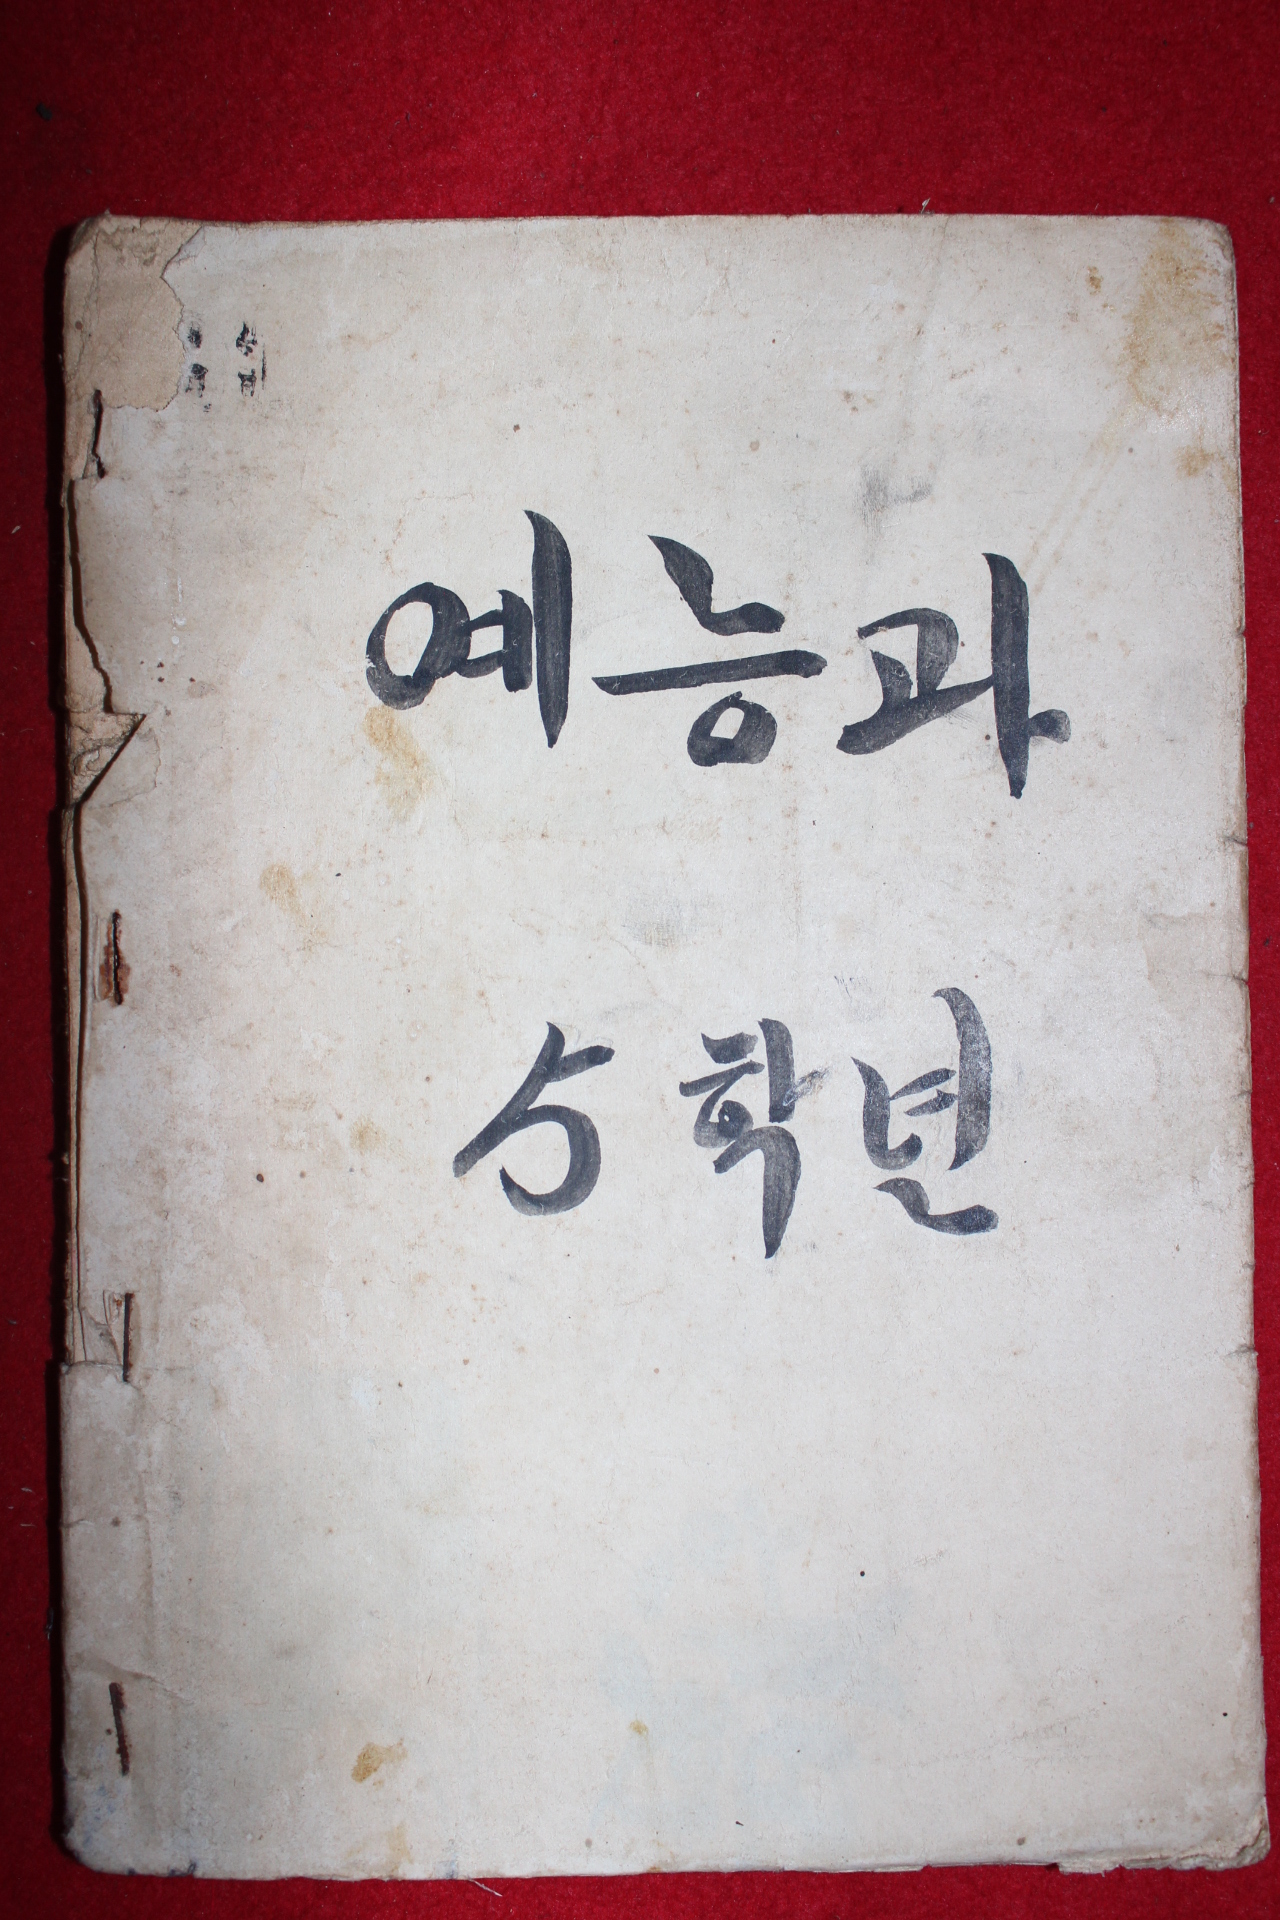 예능과
5학년